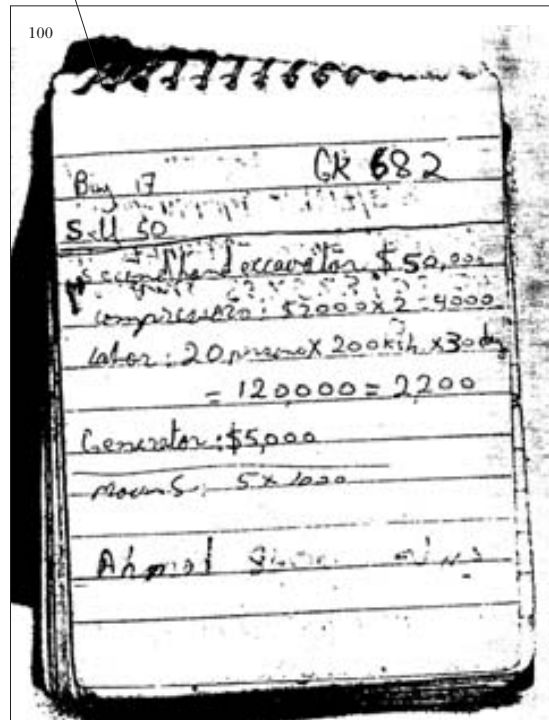 100
GK 682
Buy 17
Sell 50
Secondhand excavator $50,000
compressors: $2000 x 2 = 4000
labor: 20 persons x 200 ksh x 30 day
= 120,000 = 2,200
Generator: $5,000
5 x 1000
Ahmed